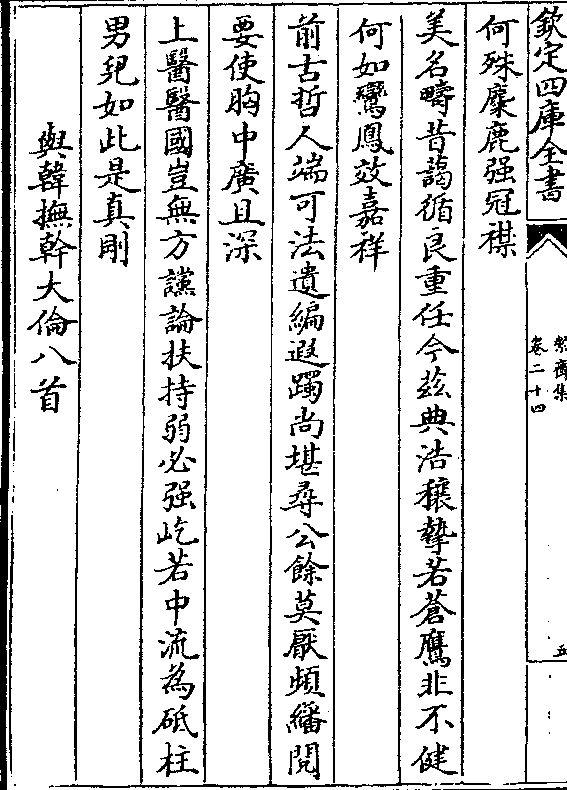 欽定四庫全書
絜齋集
卷二十四
五
何殊麋鹿强冠襟
美名疇昔藹循良重任今兹典浩穰摯若蒼鷹非不健
何如鸞鳳效嘉祥
前古哲人端可法遺編遐躅尚堪尋公餘莫厭頻繙閱
要使胸中廣且深
上醫醫國豈無方讜論扶持弱必强屹若中流為砥柱
男兒如此是真剛
與韓撫幹大倫八首